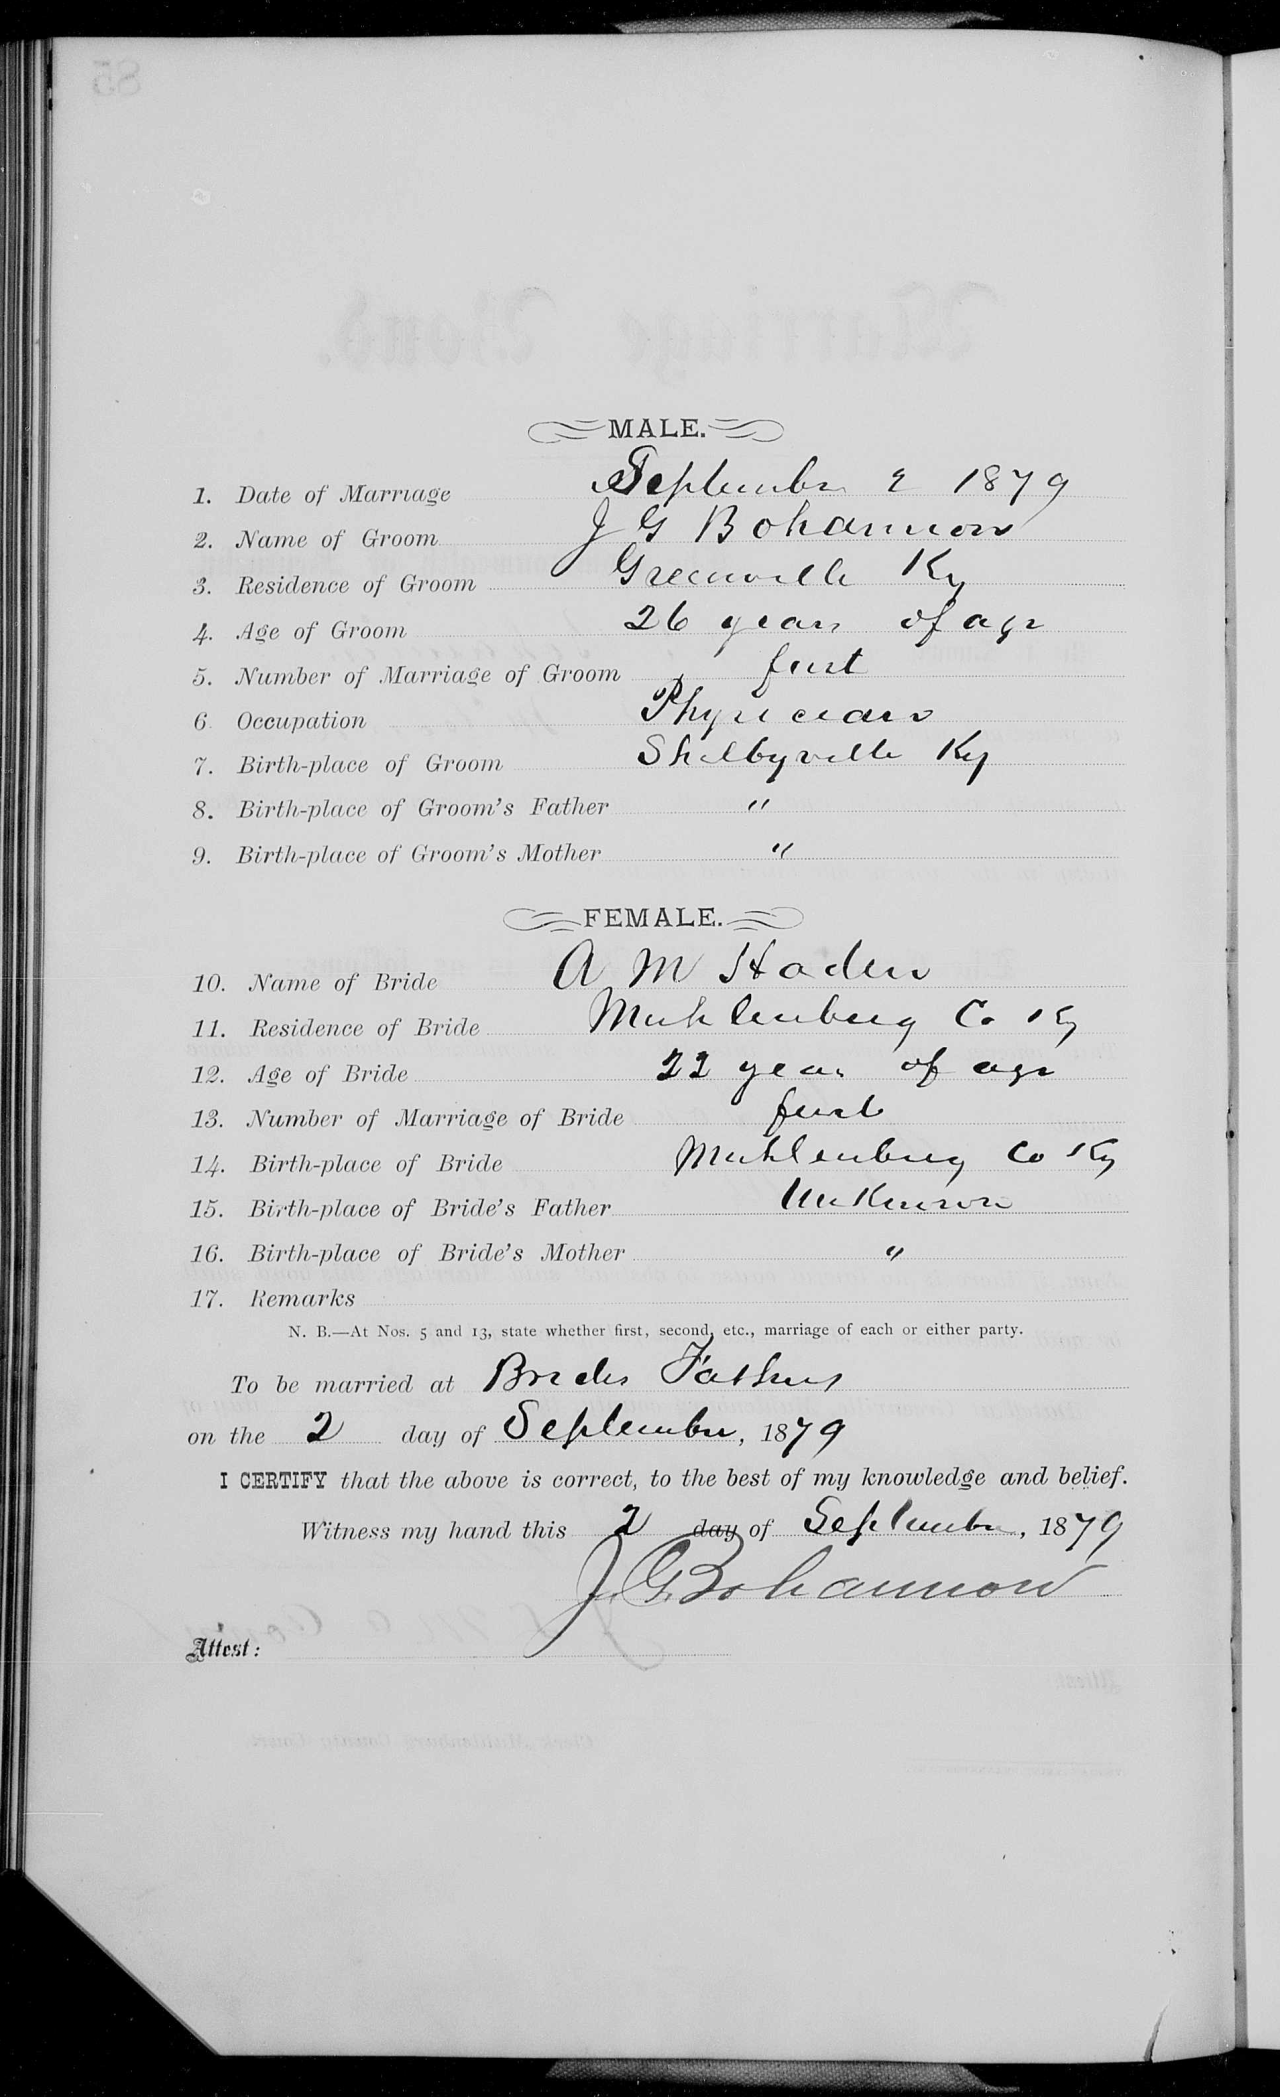 MALE.
1. Date of Marriage September 2 1879
2. Name of Groom J G Bohannon
3. Residence of Groom Greenville Ky
4. Age of Groom 26 years of age
5. Number of Marriage of Groom first
6 Occupation Physician
7. Birth-place of Groom Shelbyville Ky
8. Birth-place of Groom's Father "
9. Birth-place of Groom's Mother "
FEMALE.
10. Name of Bride A M Haden
11. Residence of Bride Muhlenburg Co Ky
12. Age of Bride 22 years of age
13. Number of Marriage of Bride first
14. Birth-place of Bride Muhlenburg Co Ky
15. Birth-place of Bride's Father Unknown
16. Birth-place of Bride's Mother "
17. Remarks
N. B.—At Nos. 5 and 13, state whether first, second, etc., marriage of each or either party.
To be married at Brides Fathers
on the 2 day of September, 1879
I CERTIFY that the above is correct, to the best of my knowledge and belief.
Witness my hand this 2 day of September, 1879
J. G. Bohannon
Attest: